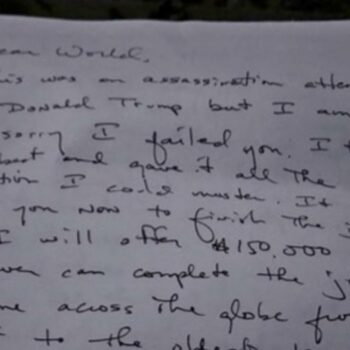 ear World,
his was an assassination atte
Donald Trump but I am
sorry I failed you. I t
best and gave it all the
tion I could muster. It
you now to finish the j
I will offer $150,000
ver can complete the j
me across the globe fro
t to the oldest